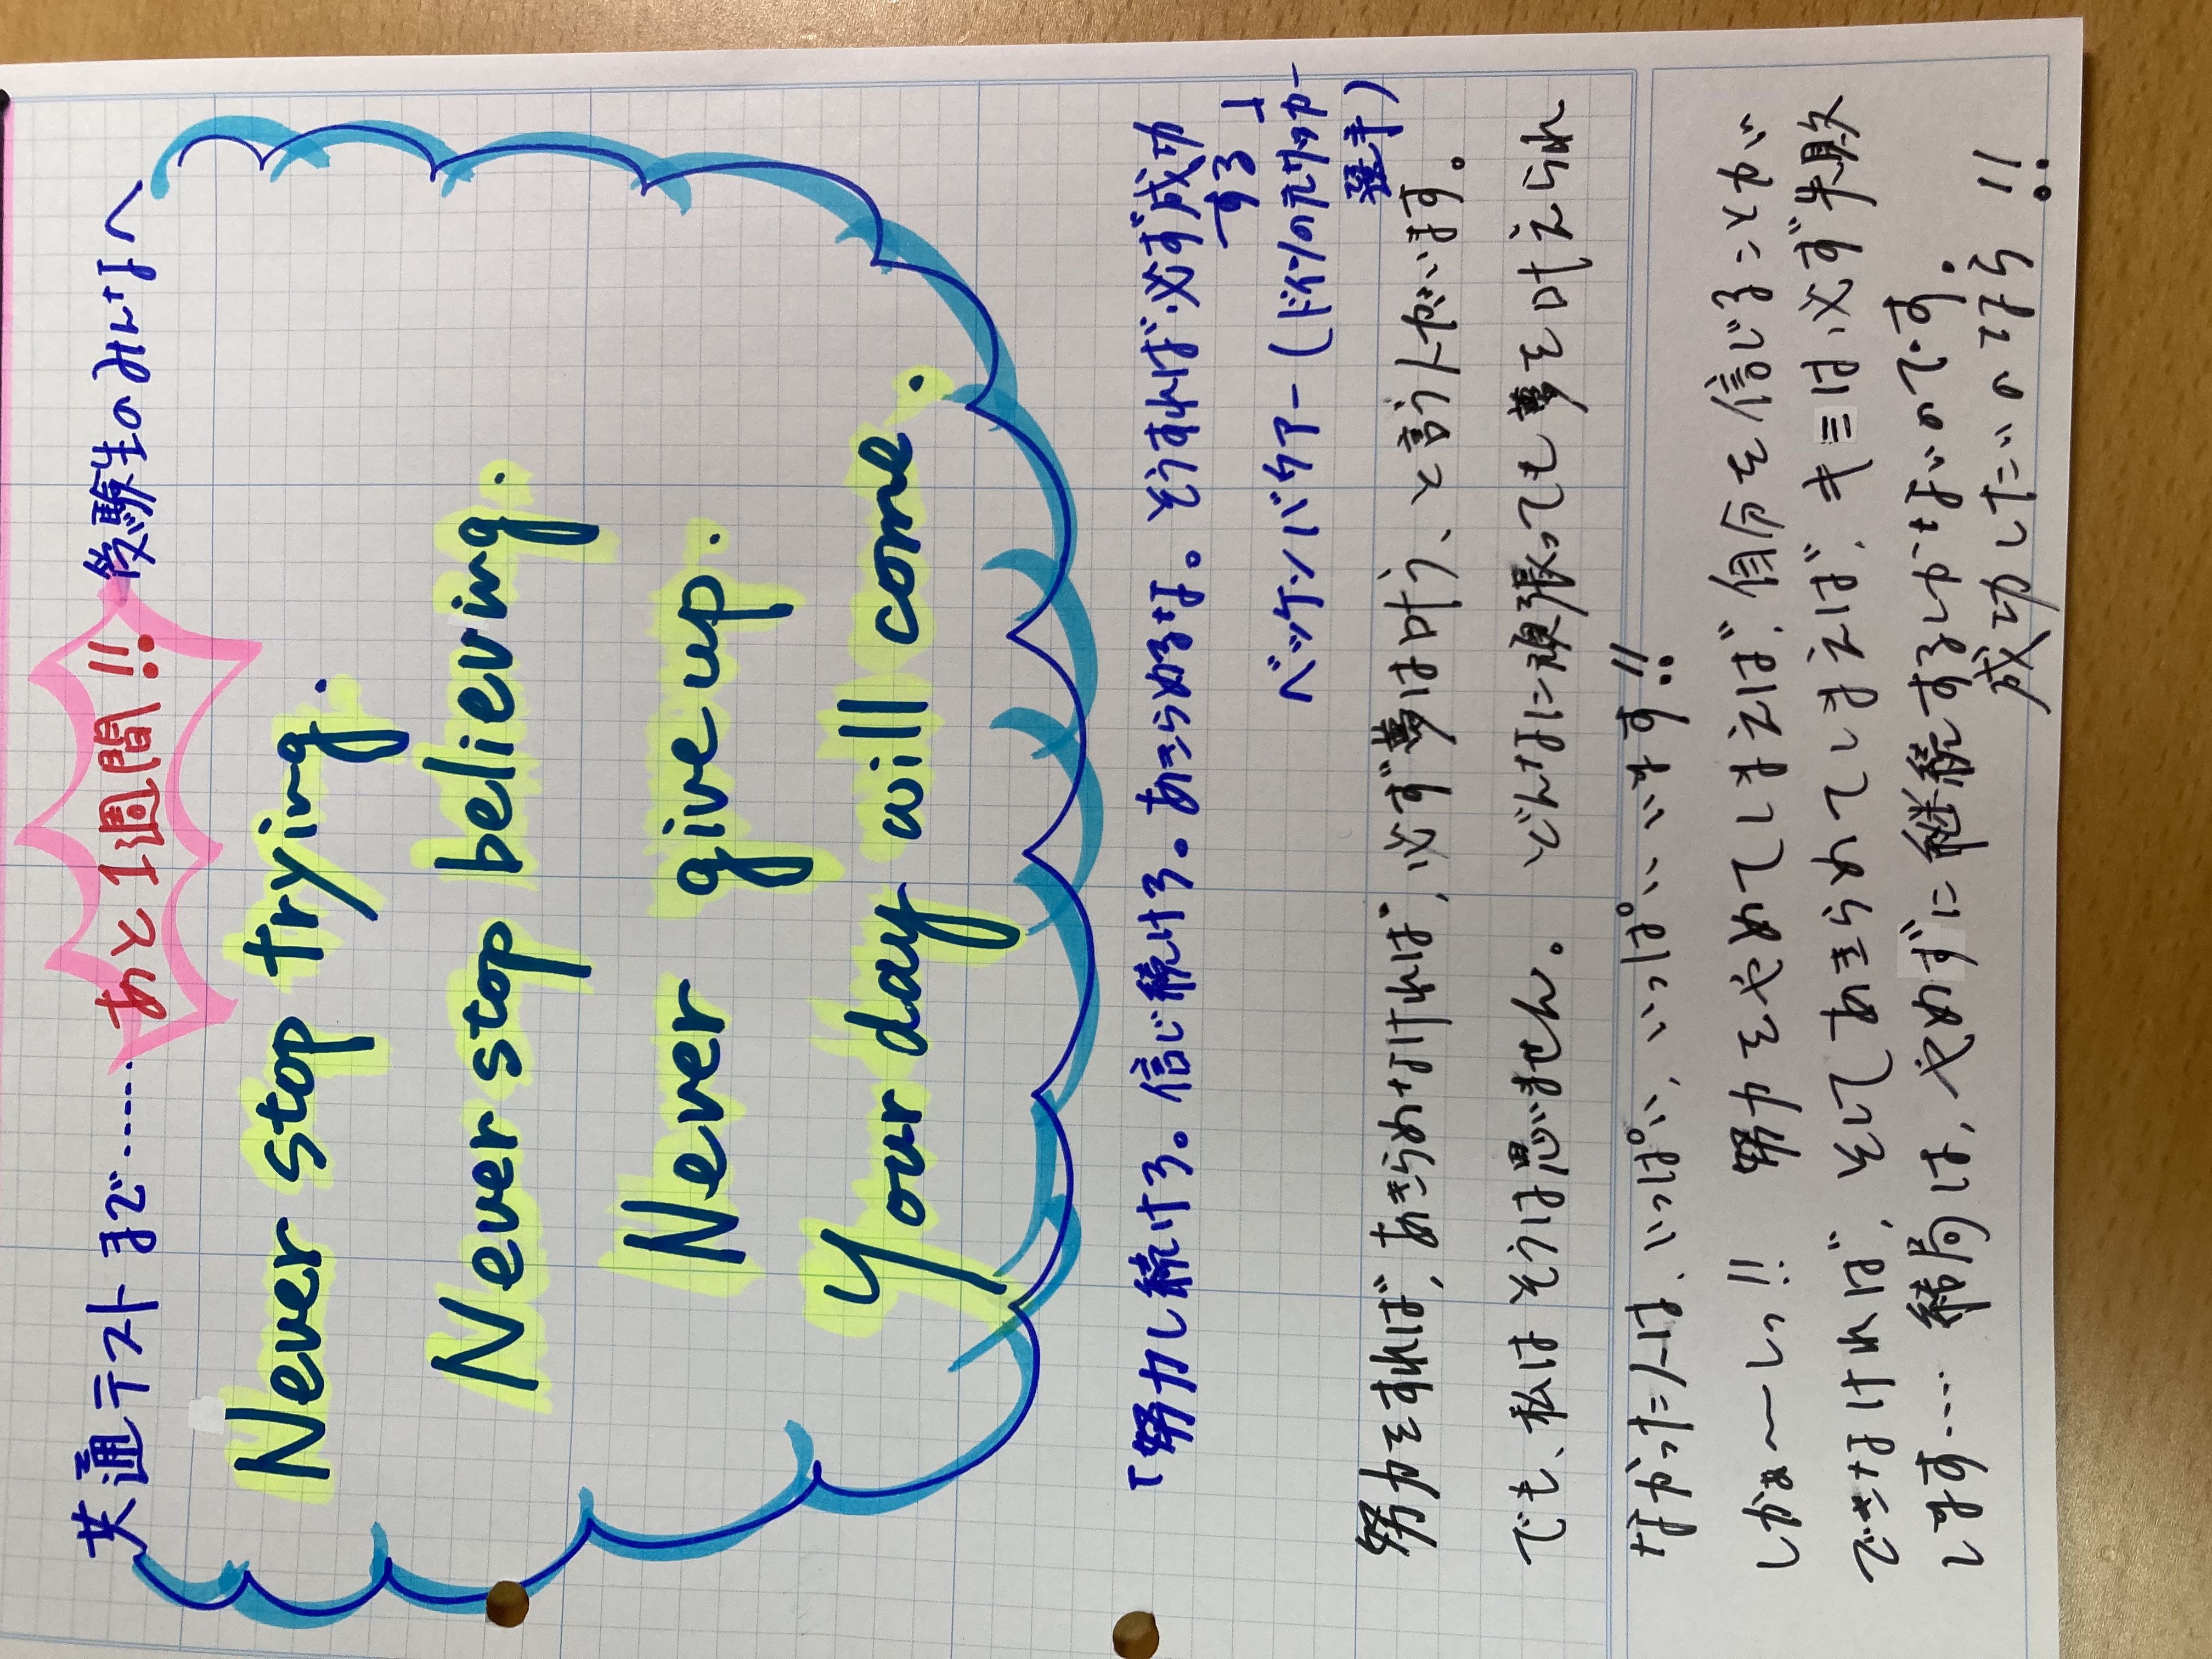 共通テストまで…… あと1週間!! 受験生のみんなへ
Never stop trying.
Never stop believing.
Never give up.
Your day will come.
「努力し続けろ。信じ続けろ。あきらめるな。そうすれば必ず成功
する」
ベッケンバウアー(ドイツの元サッカー
選手)
努力をすれば、あきらめなければ、必ず夢は叶う、と言う人がいます。
でも、私はそうは思いません。どんなに頑張っても夢を叶えられ
なかった人は、いっぱい、いっぱい、います!!
しかぁ〜しっ!! 努力をやめてしまえば、自分を信じることが
できなければ、そしてあきらめてしまえば、キミは必ず失敗
します… 結局は、やめずに継続するしかないのです。
成功したいのなら!!